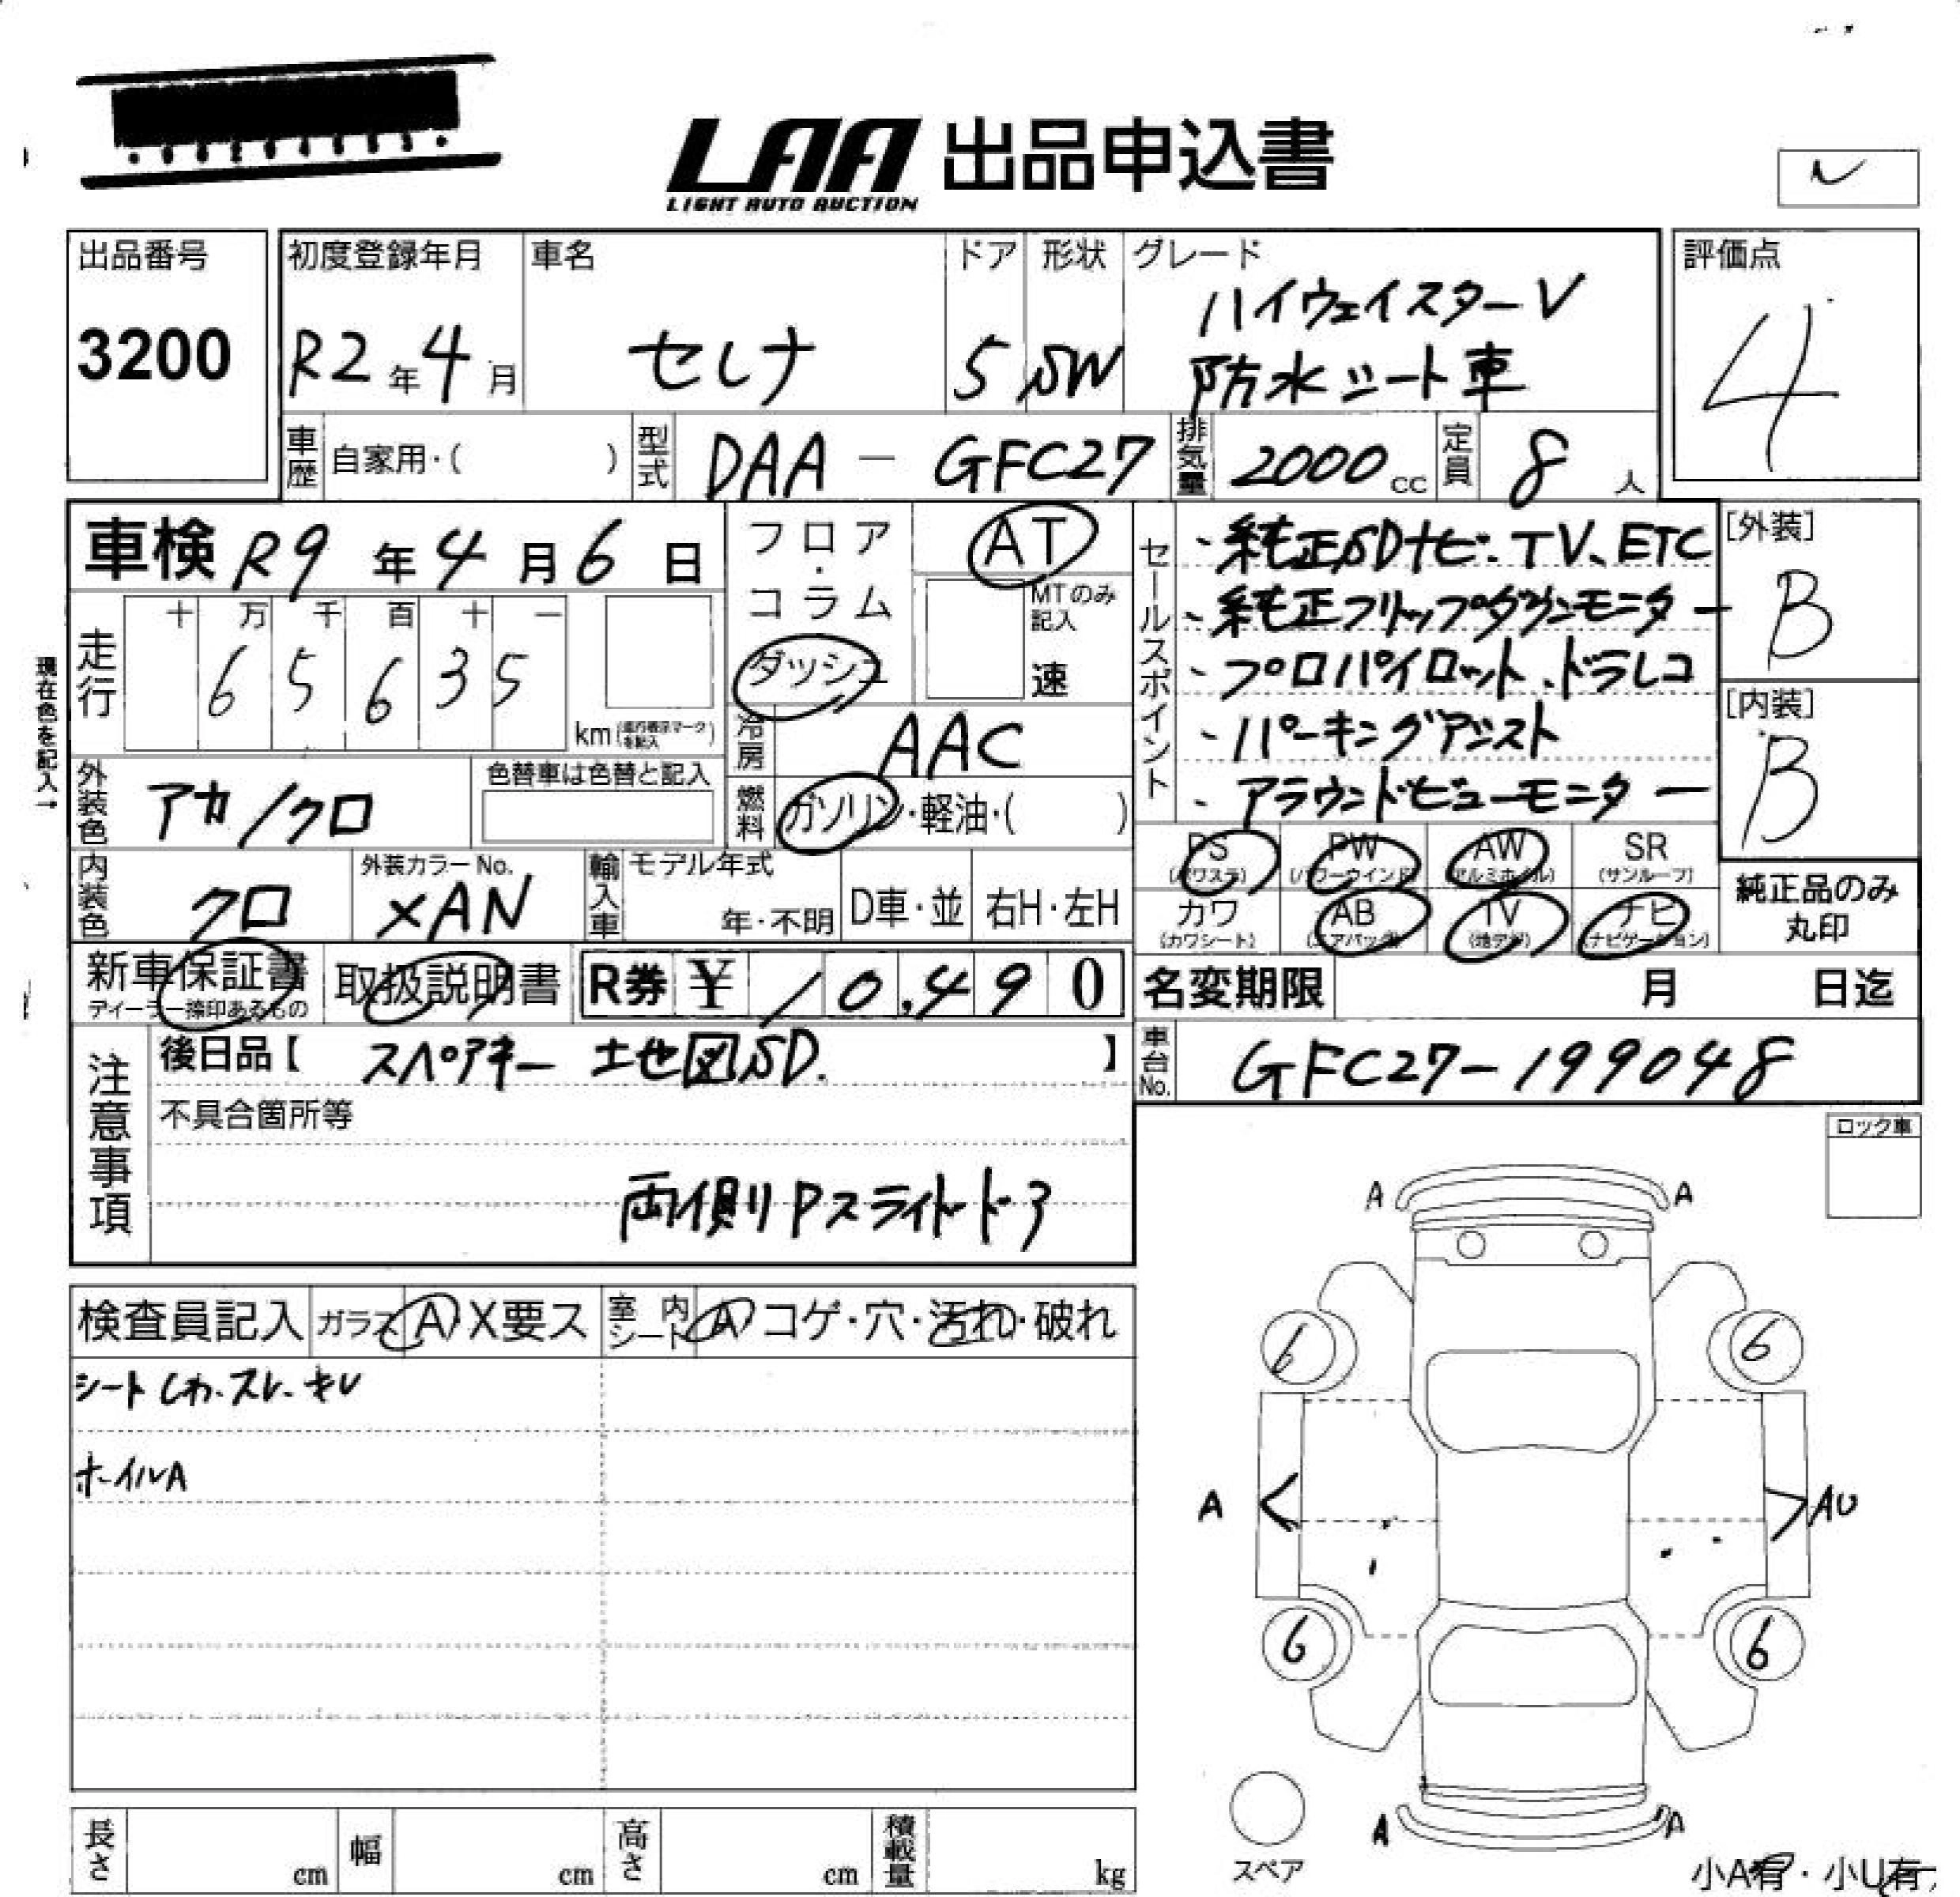 LAA 出品申込書
LIGHT AUTO AUCTION
出品番号
3200
初度登録年月
R2年4月
車名
セレナ
ドア
5
形状
SW
グレード
ハイウェイスターV
防水シート車
評価点
4
車歴 自家用・( )
型式 DAA - GFC27
排気量 2000cc
定員 8人
車検 R9年4月6日
走行
十 万 千 百 十 一
6 5 6 3 5
km(走行表示マークを記入)
現在色を記入→
フロア・コラム
ダッシュ
AT
MTのみ記入
速
冷房 AAC
燃料 ガソリン・軽油・( )
外装色 アカ/クロ
色替車は色替と記入
内装色 クロ
外装カラーNo.
XAN
輸入車
モデル年式
年・不明
D車・並
右H・左H
セールスポイント
・純正SDナビ、TV、ETC
・純正フリップダウンモニター
・プロパイロット、ドラレコ
・パーキングアシスト
・アラウンドビューモニター
[外装]
B
[内装]
B
PS (パワステ)
PW (パワーウインド)
AW (アルミホイル)
SR (サンルーフ)
カワ (カワシート)
AB (エアバッグ)
TV (地デジ)
ナビ (ナビゲーション)
純正品のみ
丸印
新車保証書
ディーラー捺印あるもの
取扱説明書
R券 ¥ 10,490
名変期限 月 日迄
車台No. GFC27-199048
注意事項
後日品【 スペアキー 地図SD. 】
不具合箇所等
両側Pスライドドア
ロック車
検査員記入
ガラス A X要ス
室内シート A コゲ・穴・汚れ・破れ
シートしわ、スレ、キレ
ホイルA
A A
6 6
A AU
6 6
A A
スペア
小A有・小U有
長さ cm
幅 cm
高さ cm
積載量 kg